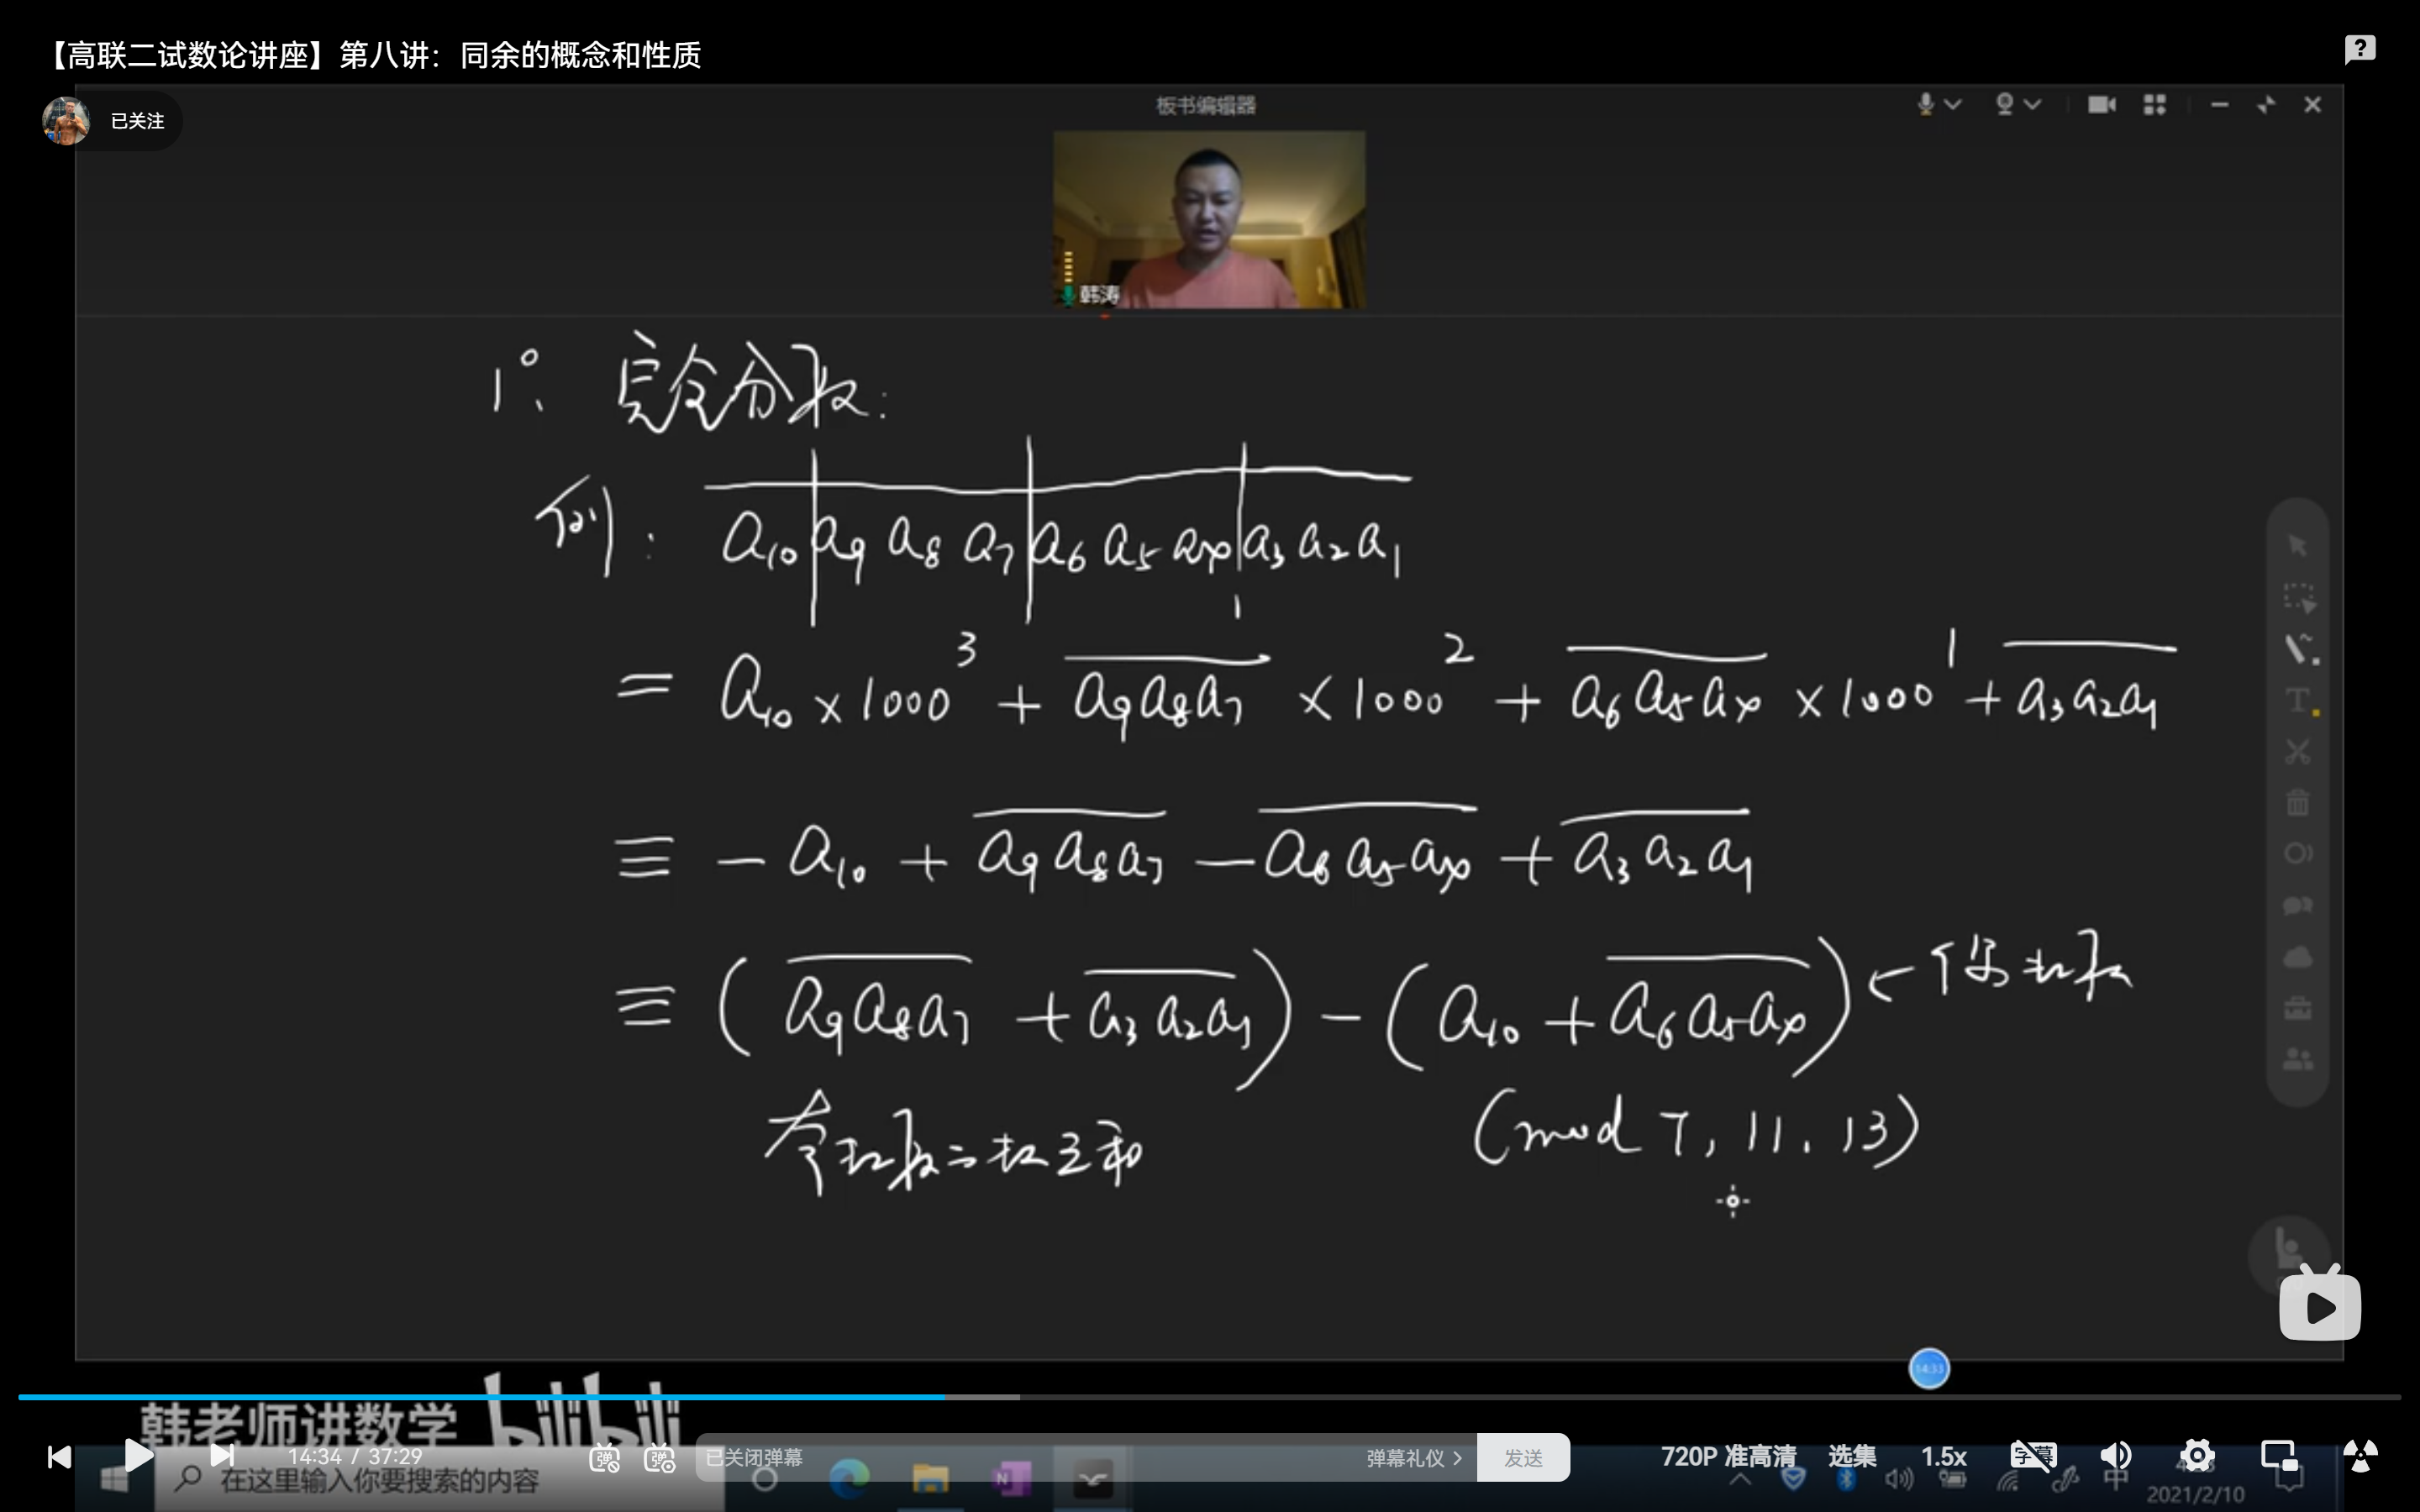 【高联二试数论讲座】第八讲：同余的概念和性质
已关注
板书编辑器
韩涛
1°. 完全分段:
例: a₁₀|a₉ a₈ a₇|a₆ a₅ a₄|a₃ a₂ a₁
= a₁₀ × 1000³ + a₉a₈a₇ × 1000² + a₆a₅a₄ × 1000¹ + a₃a₂a₁
≡ - a₁₀ + a₉a₈a₇ - a₆a₅a₄ + a₃a₂a₁
≡ (a₉a₈a₇ + a₃a₂a₁) - (a₁₀ + a₆a₅a₄) ← 偶数段
奇数段之和
(mod 7, 11, 13)
14:33
韩老师讲数学 bilibili
14:34 / 37:29
已关闭弹幕
弹幕礼仪 >
发送
720P 准高清
选集
1.5x
字幕
在这里输入你要搜索的内容
中
2021/2/10